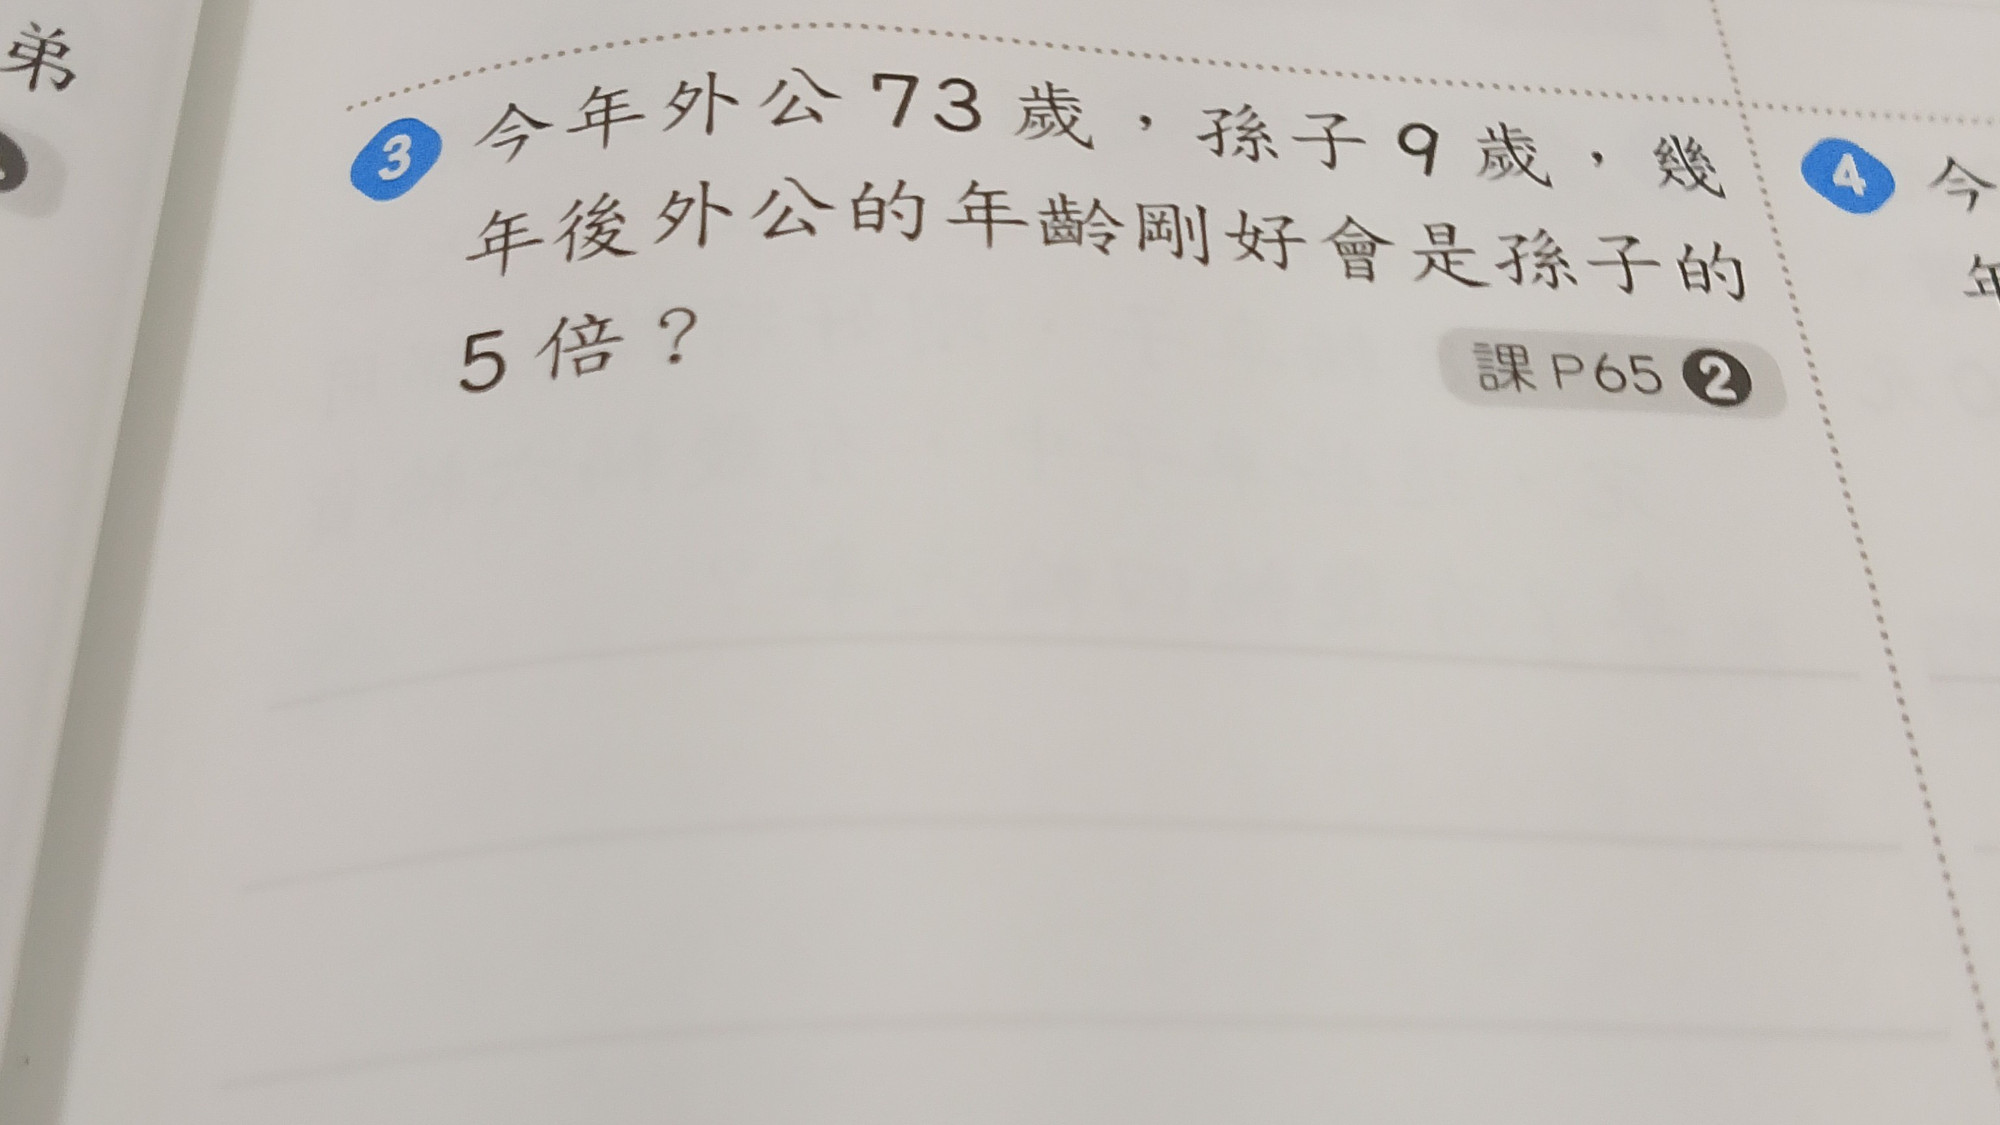 弟
3 今年外公73歲，孫子9歲，幾
年後外公的年齡剛好會是孫子的
5倍？
課P65 2
4 今
年